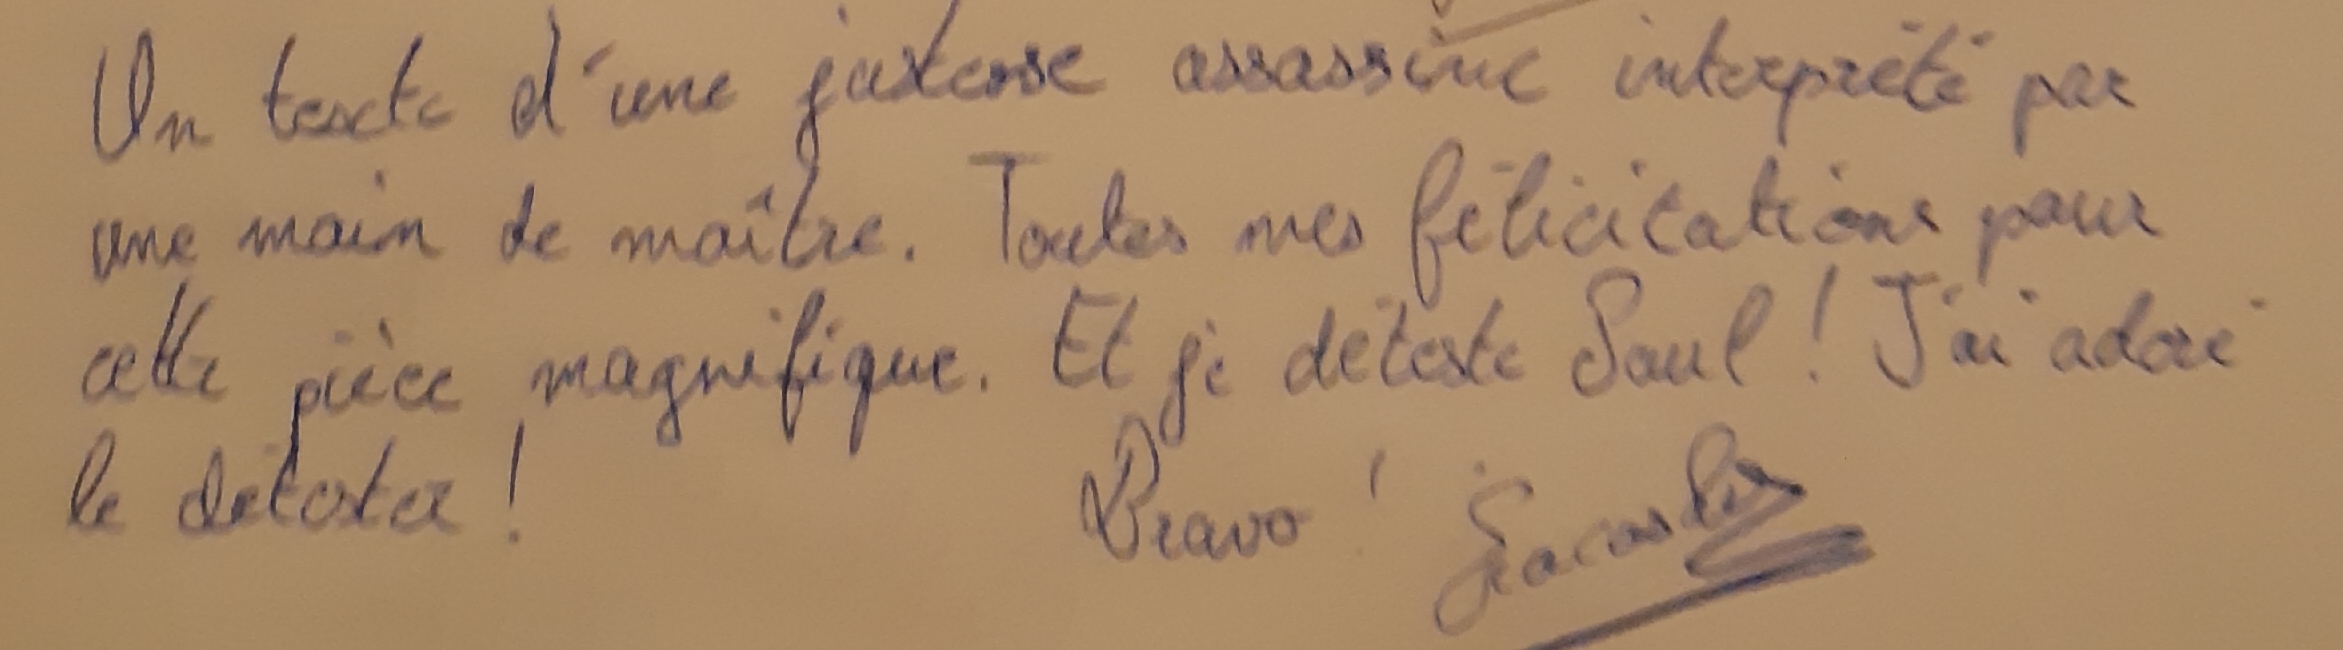 Un texte d'une justesse assassine interprété par
une main de maître. Toutes mes félicitations pour
cette pièce magnifique. Et je déteste Saul ! J'ai adoré
le détester !
Bravo !